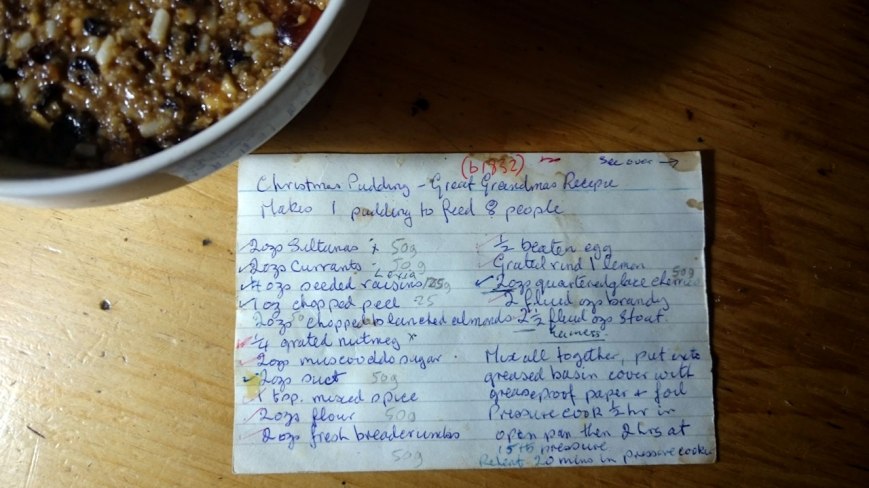 (b1832) see over →
Christmas Pudding - Great Grandmas Recipe
Makes 1 pudding to feed 8 people
2ozs Sultanas x 50g
2ozs Currants 50g
Lexia
4 ozs seeded raisins 125g
1 oz chopped peel 25
2ozs 50 chopped blanched almonds
1/4 grated nutmeg x
2ozs muscovado sugar.
2ozs suet 50g
1 tsp. mixed spice
2ozs flour 50g
2ozs fresh breadcrumbs
50g
1/2 beaten egg
Grated rind 1 lemon
2ozs quartered glace cherries 50g
2 fluid ozs brandy
2 1/2 fluid ozs stout
Mix all together, put into
greased basin cover with
greaseproof paper + foil
Pressure cook 1/2 hr in
open pan then 2 hrs at
15lb pressure
Reheat 20 mins in pressure cooker